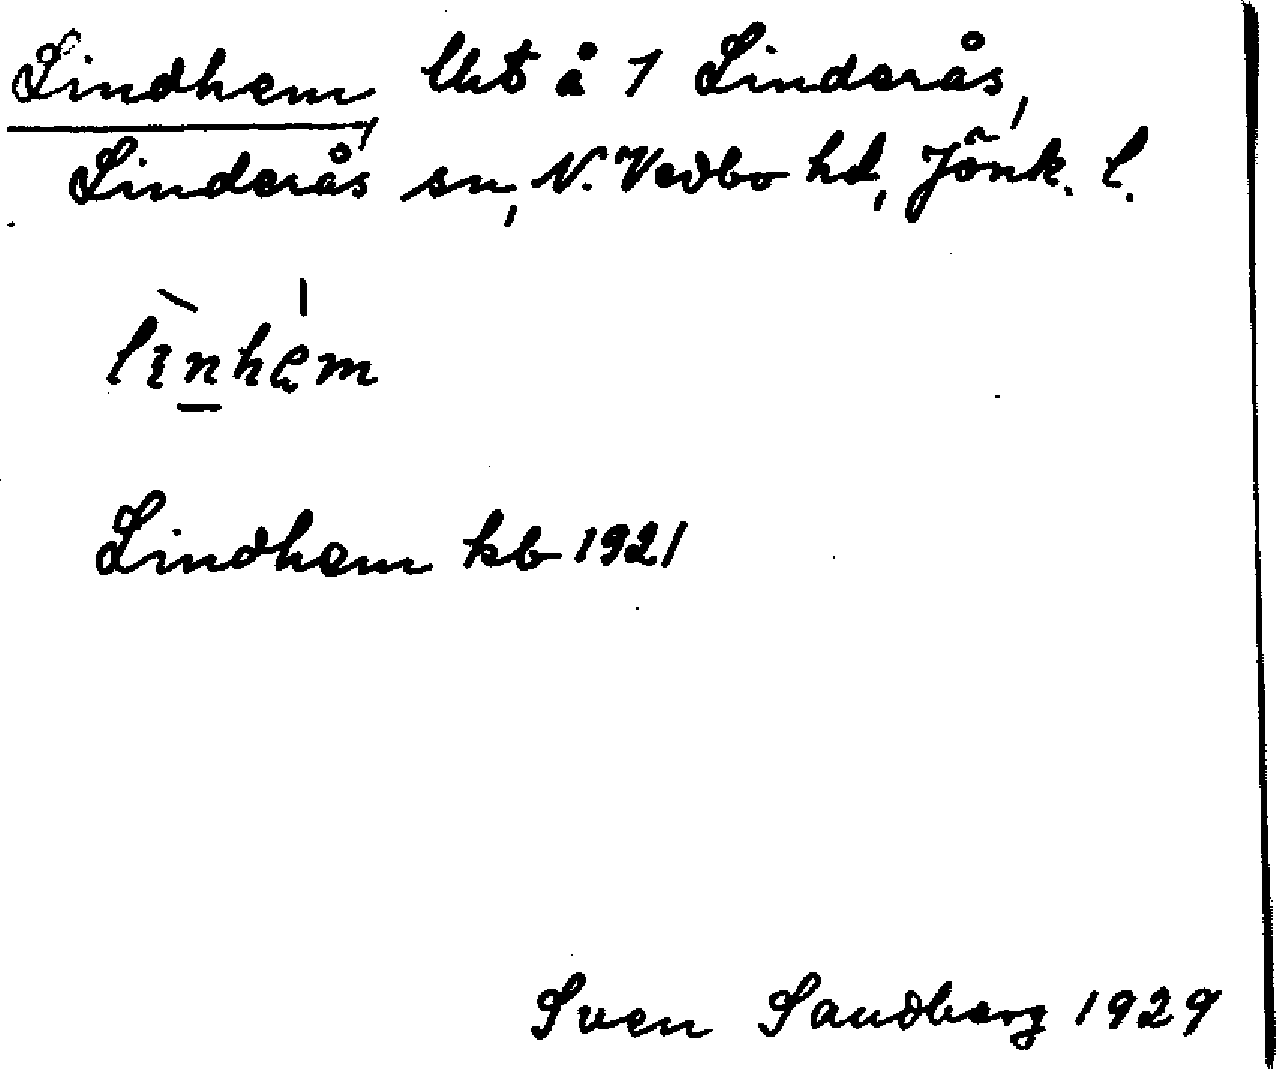 Lindhem, lht å 1 Linderås,
Linderås sn, N. Vedbo hd, Jönk. l.
lìnhe̍m
Lindhem kb 1921
Sven Sandberg 1929